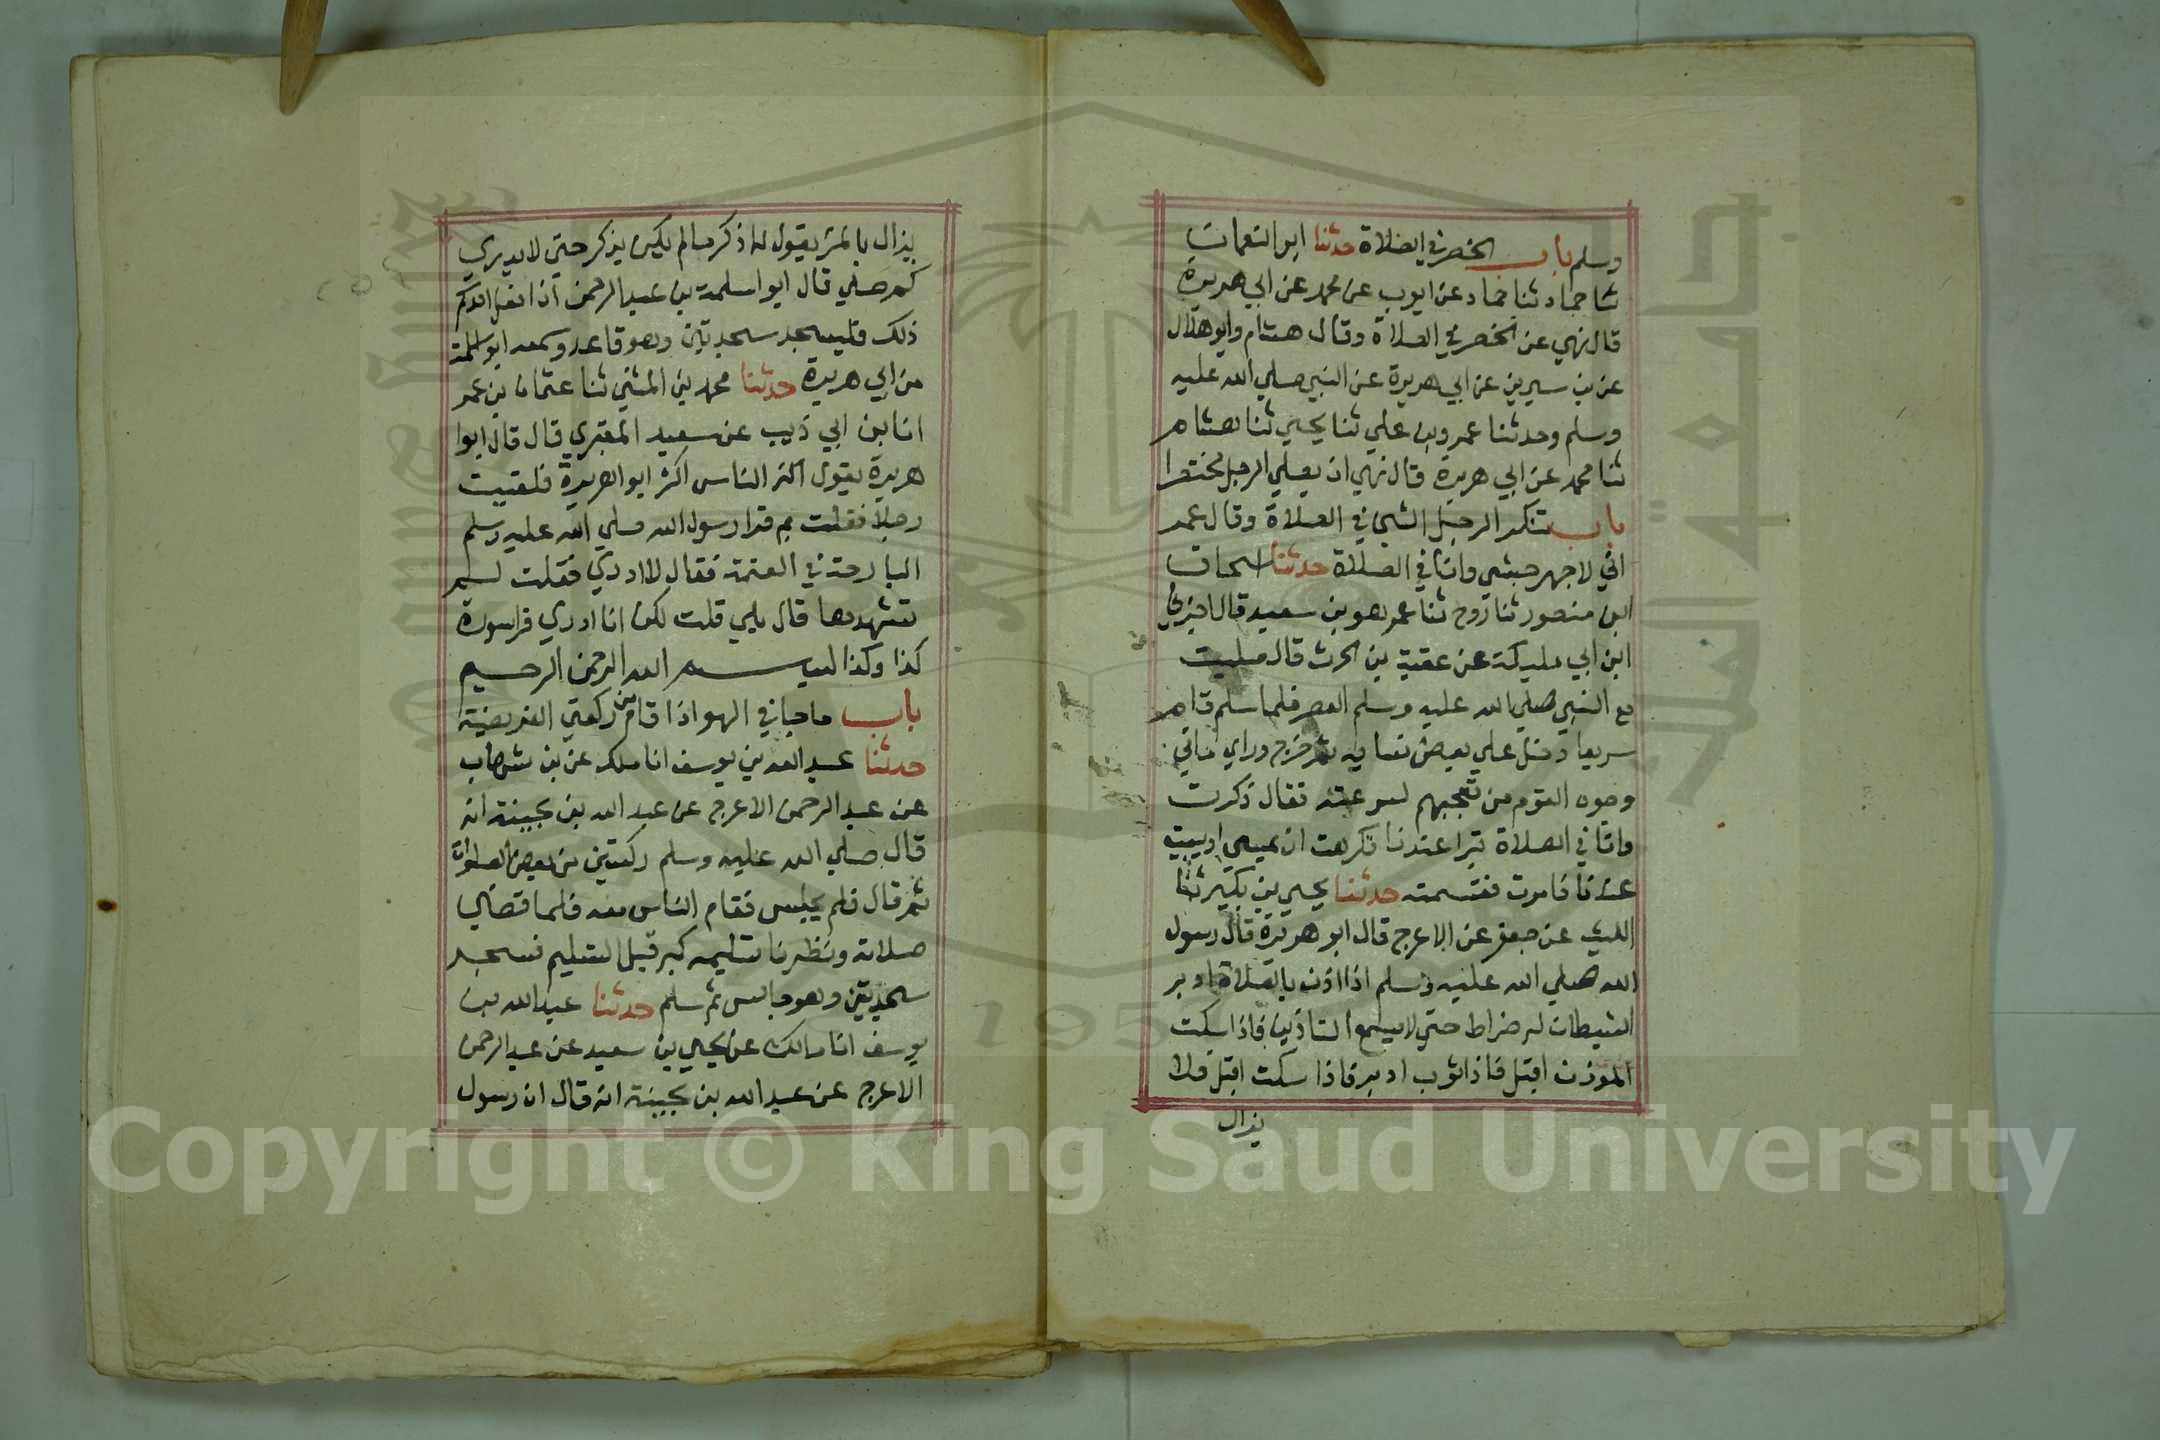 وسلم باب الخصر في الصلاة حدثنا ابو النعمان
ثنا حماد ثنا حماد عن ايوب عن محمد عن ابي هريرة
قال نهي عن الخصر في الصلاة وقال هشام وابو هلال
عن بن سيرين عن ابي هريرة عن النبي صلي الله عليه
وسلم وحدثنا عمرو بن علي ثنا يحيي ثنا هشام
ثنا محمد عن ابي هريرة قال نهي ان يصلي الرجل مختصرا
باب تفكر الرجل الشي في الصلاة وقال عمر
اني لاجهز جيشي وانا في الصلاة حدثنا اسحاق
ابن منصور ثنا روح ثنا عمر هو بن سعيد قال اخبرني
ابن ابي مليكة عن عقبة بن الحرث قال صليت
مع النبي صلي الله عليه وسلم العصر فلما سلم قام
سريعا دخل علي بعض نسايه ثم خرج وراي ماني
وجوه القوم من تعجبهم لسرعته فقال ذكرت
وانا في الصلاة تبرا عندنا فكرهت ان يمسي او يبيت
عندنا فامرت فقسمته حدثنا يحيي بن بكير ثنا
الليث عن جعفر عن الاعرج قال ابو هريرة قال رسول
الله صلي الله عليه وسلم اذا اذن بالصلاة ادبر
الشيطان له ضراط حتي لا يسمع التاذين فاذا سكت
الموذن اقبل فاذا ثوب ادبر فاذا سكت اقبل فلا
يزال
يزال بالمر يقول له اذكر مالم يكن يذكر حتي لا يدري
كم صلي قال ابو اسلمة بن عبد الرحمن اذا فعل احدكم
ذلك فليسجد سجدتين وهو قاعد وسمعه ابو سلمة
من ابي هريرة حدثنا محمد بن المثني ثنا عثمان بن عمر
انا بن ابي ذيب عن سعيد المقبري قال قال ابوا
هريرة يقول الناس اكثر ابو اهريرة فلقيت
رجلا فقلت بم قرا رسول الله صلي الله عليه وسلم
البارحة في العتمة فقال لا ادري فقلت لم
تشهدها قال بلي قلت لكن انا ادري قرا سورة
كذا وكذا بسم الله الرحمن الرحيم
باب ماجا في السهو اذا قام من ركعتي الفريضة
حدثنا عبد الله بن يوسف انا ملك عن بن شهاب
عن عبد الرحمن الاعرج عن عبد الله بن بحينة انه
قال صلي الله عليه وسلم ركعتين من بعض الصلوات
ثم قال فلم يجلس فقام الناس معه فلما قضي
صلاته ونظرنا تسليمه كبر قبل التسليم فسجد
سجدتين وهو جالس ثم سلم حدثنا عبد الله بن
يوسف انا مالك عن يحيي بن سعيد عن عبد الرحمن
الاعرج عن عبد الله بن بحينة انه قال ان رسول
جامعة الملك سعود
1957
Copyright © King Saud University